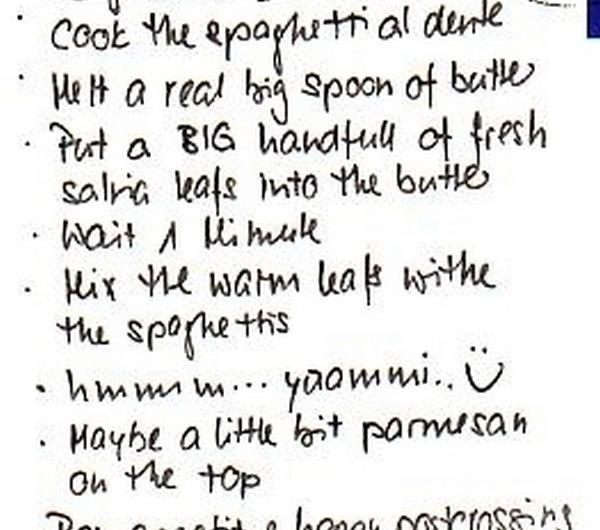 · Cook the spaghetti al dente
· Melt a real big spoon of butter
· Put a BIG handfull of fresh
salvia leafs into the butter
· Wait 1 Minute
· Mix the warm leafs withe
the spaghettis
· hmmm m... yaammi.. Ü
· Maybe a little bit parmesan
on the top
Bon appetit & happy postcrossing